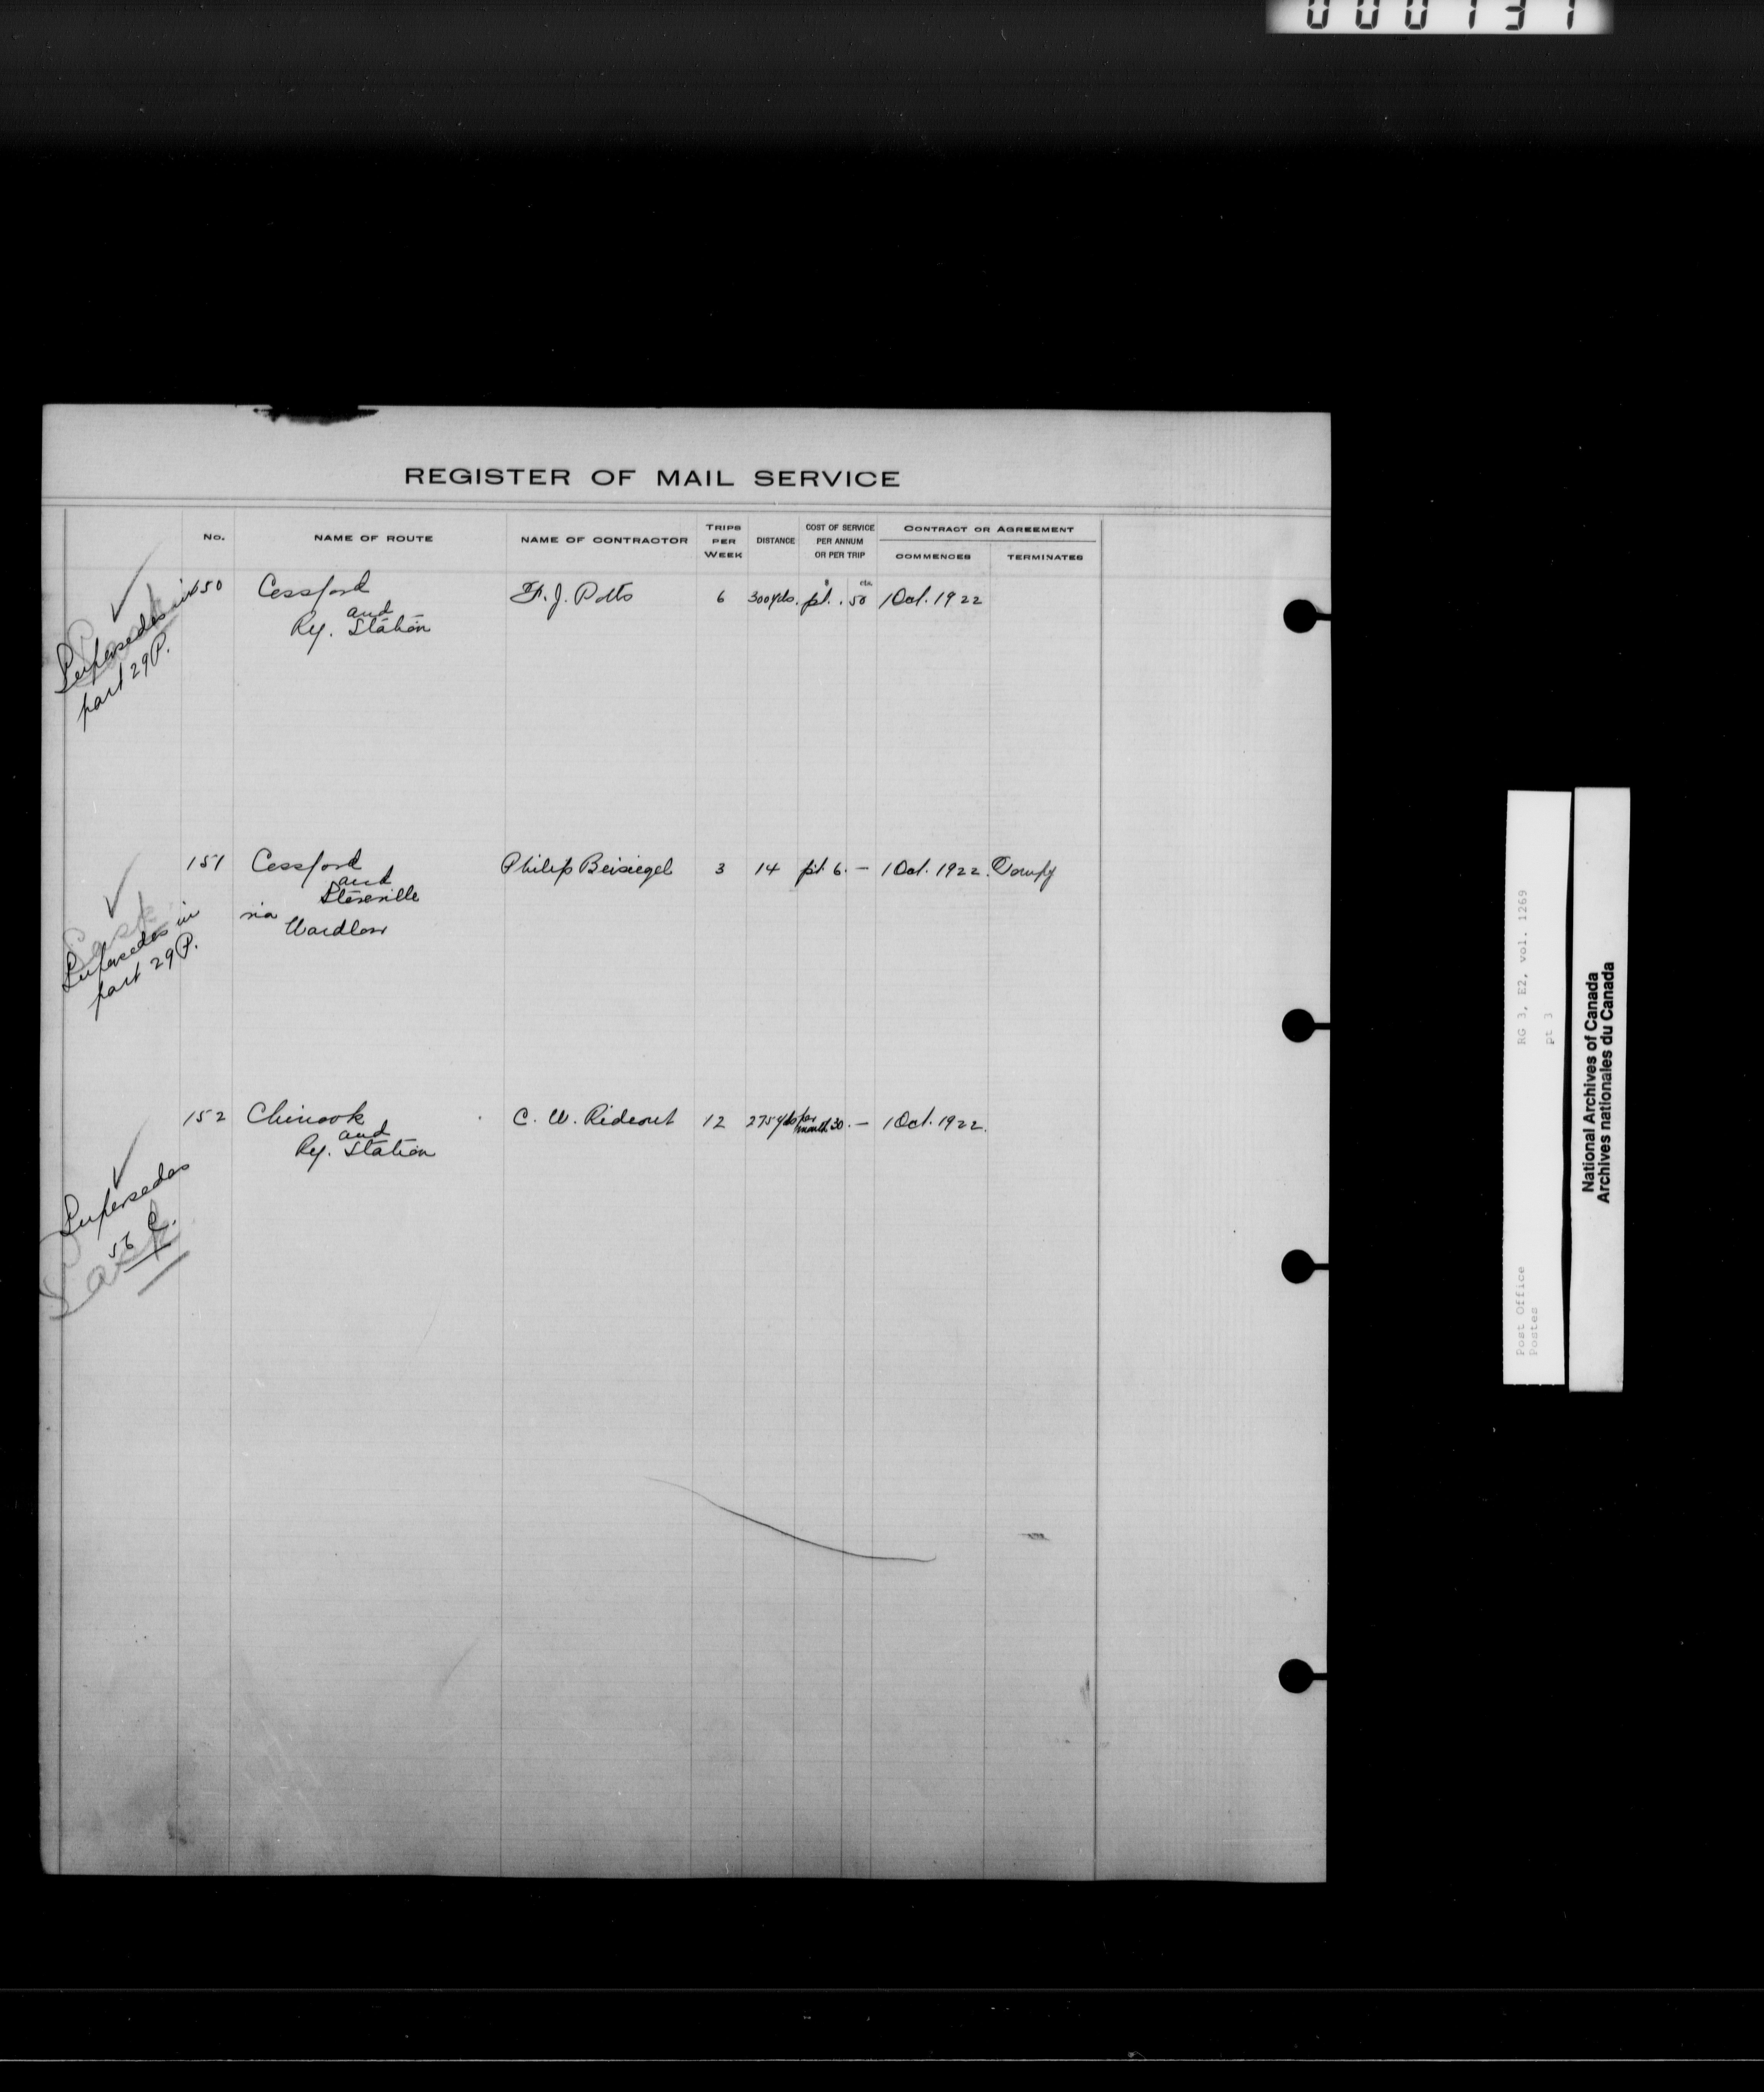 000131
REGISTER OF MAIL SERVICE
No. NAME OF ROUTE NAME OF CONTRACTOR TRIPS PER WEEK DISTANCE COST OF SERVICE PER ANNUM OR PER TRIP CONTRACT OR AGREEMENT
COMMENCES TERMINATES
$ cts.
150 Cessford F. J. Potts 6 300 yds. pt. . 50 1 Oct. 1922
and
Ry. Station
Supersedes in
part 29 P.
151 Cessford Philip Beisiegel 3 14 pt. 6. — 1 Oct. 1922. Tempy
and
Steveville
via
Wardlow
Sask
Supersedes in
part 29 P.
152 Chinook C. W. Rideout 12 275 yds per month 30. — 1 Oct. 1922.
and
Ry. Station
Supersedes
56 C.
Sask
RG 3, E2, vol. 1269
pt 3
Post Office
Postes
National Archives of Canada
Archives nationales du Canada